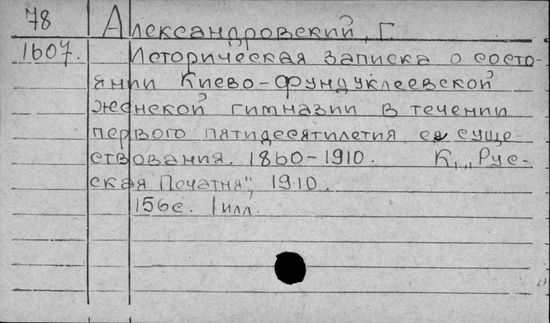 78 Александровский, Г.
1607. Историческая записка о состо-
янии Киево-Фундуклеевской
женской гимназии в течении
первого пятидесятилетия ее суще-
ствования. 1860-1910. К., „Рус-
ская Печатня", 1910.
156с. 1 илл.